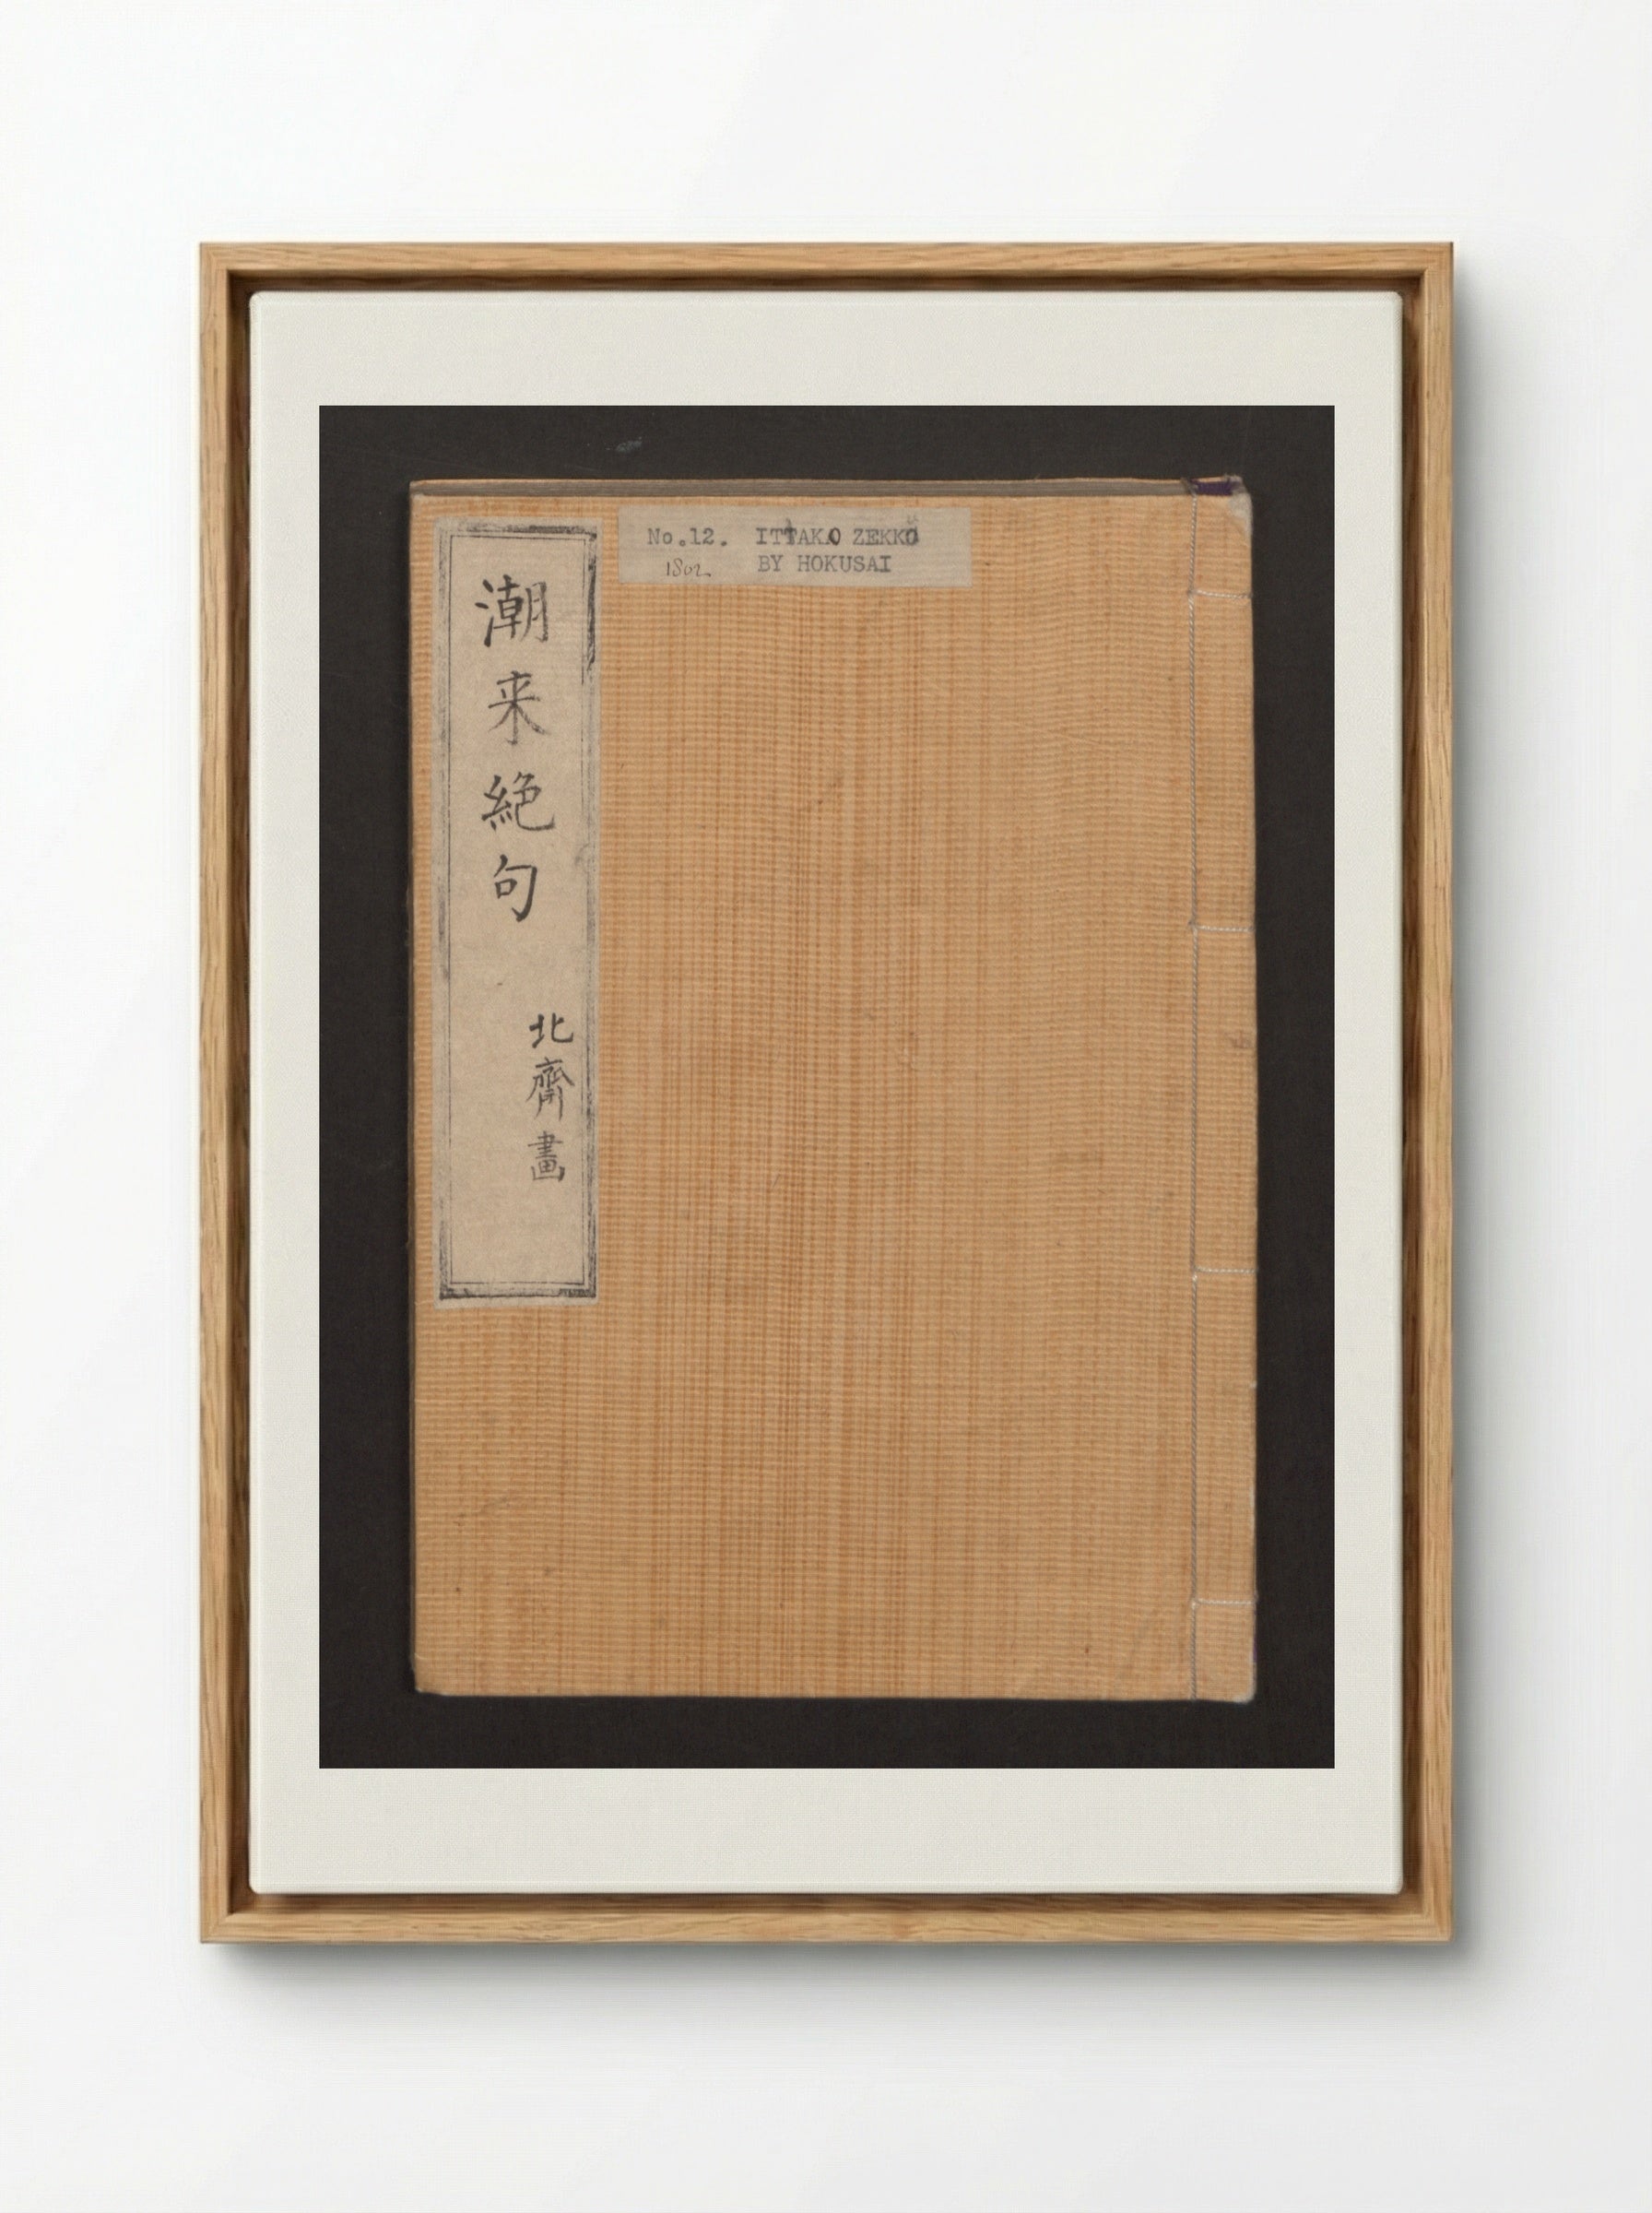 潮来絶句
北齋畫
No.12. ITTAKO ZEKKO
1802 BY HOKUSAI